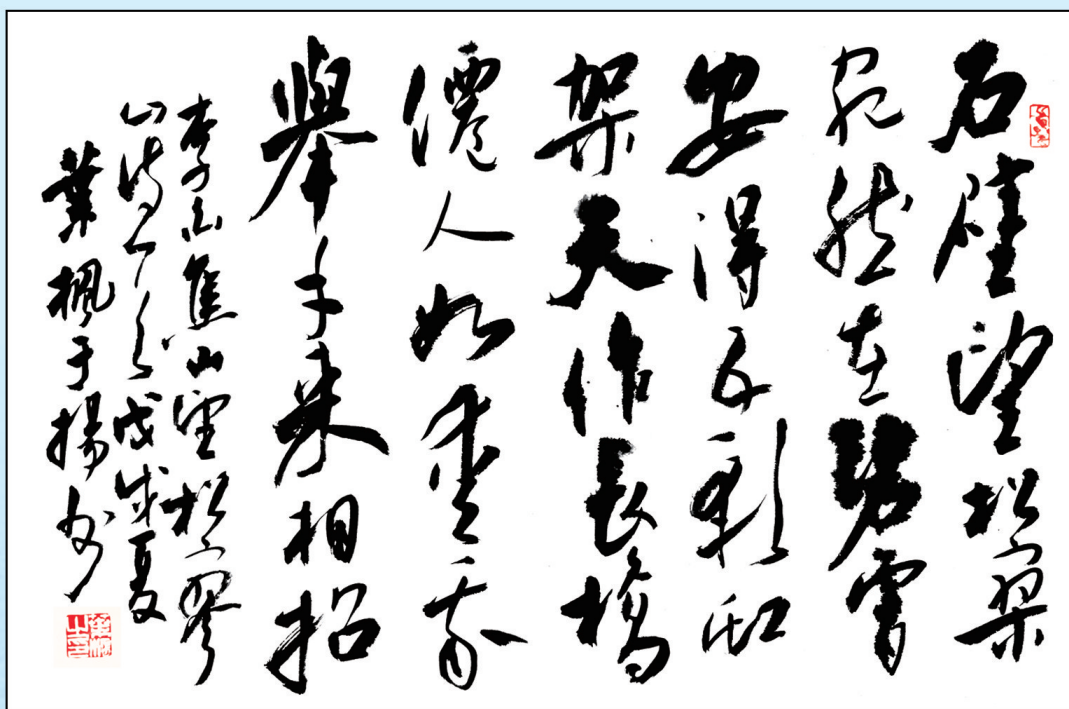 石壁望松寥
宛然在碧霄
安得五彩虹
架天作長橋
僊人如愛我
舉手來相招
李白焦山望松寥
山詩一首戊戌夏
葉楓于揚州